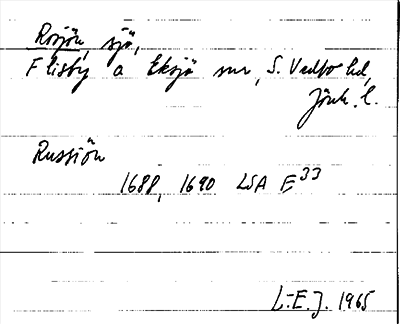 Rosjön, sjö,
Flisby o Eksjö snr, S. Vedbo hd,
Jönk. l.
Russiön
1688, 1690 LSA E33
L-E.J. 1965